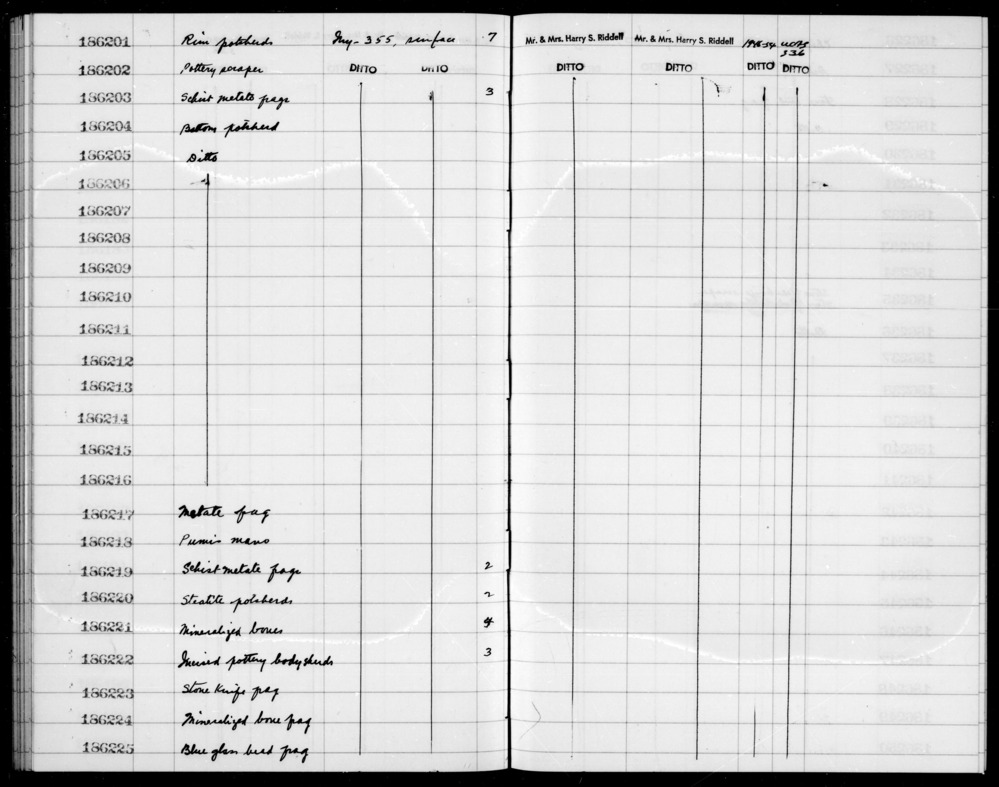 186201 Rim potsherds Iny-355, surface 7 Mr. & Mrs. Harry S. Riddell Mr. & Mrs. Harry S. Riddell 1948-54 UCAS 336
186202 Pottery scraper DITTO DITTO DITTO DITTO DITTO DITTO
186203 Schist metate frags 3
186204 Bottom potsherd
186205 Ditto
186206
186207
186208
186209
186210
186211
186212
186213
186214
186215
186216
186217 Metate frag
186218 Pumis mano
186219 Schist metate frags 2
186220 Steatite potsherds 2
186221 Mineralized bones 4
186222 Incised pottery body sherds 3
186223 Stone Knife frag
186224 Mineralized bone frag
186225 Blue glass bead frag